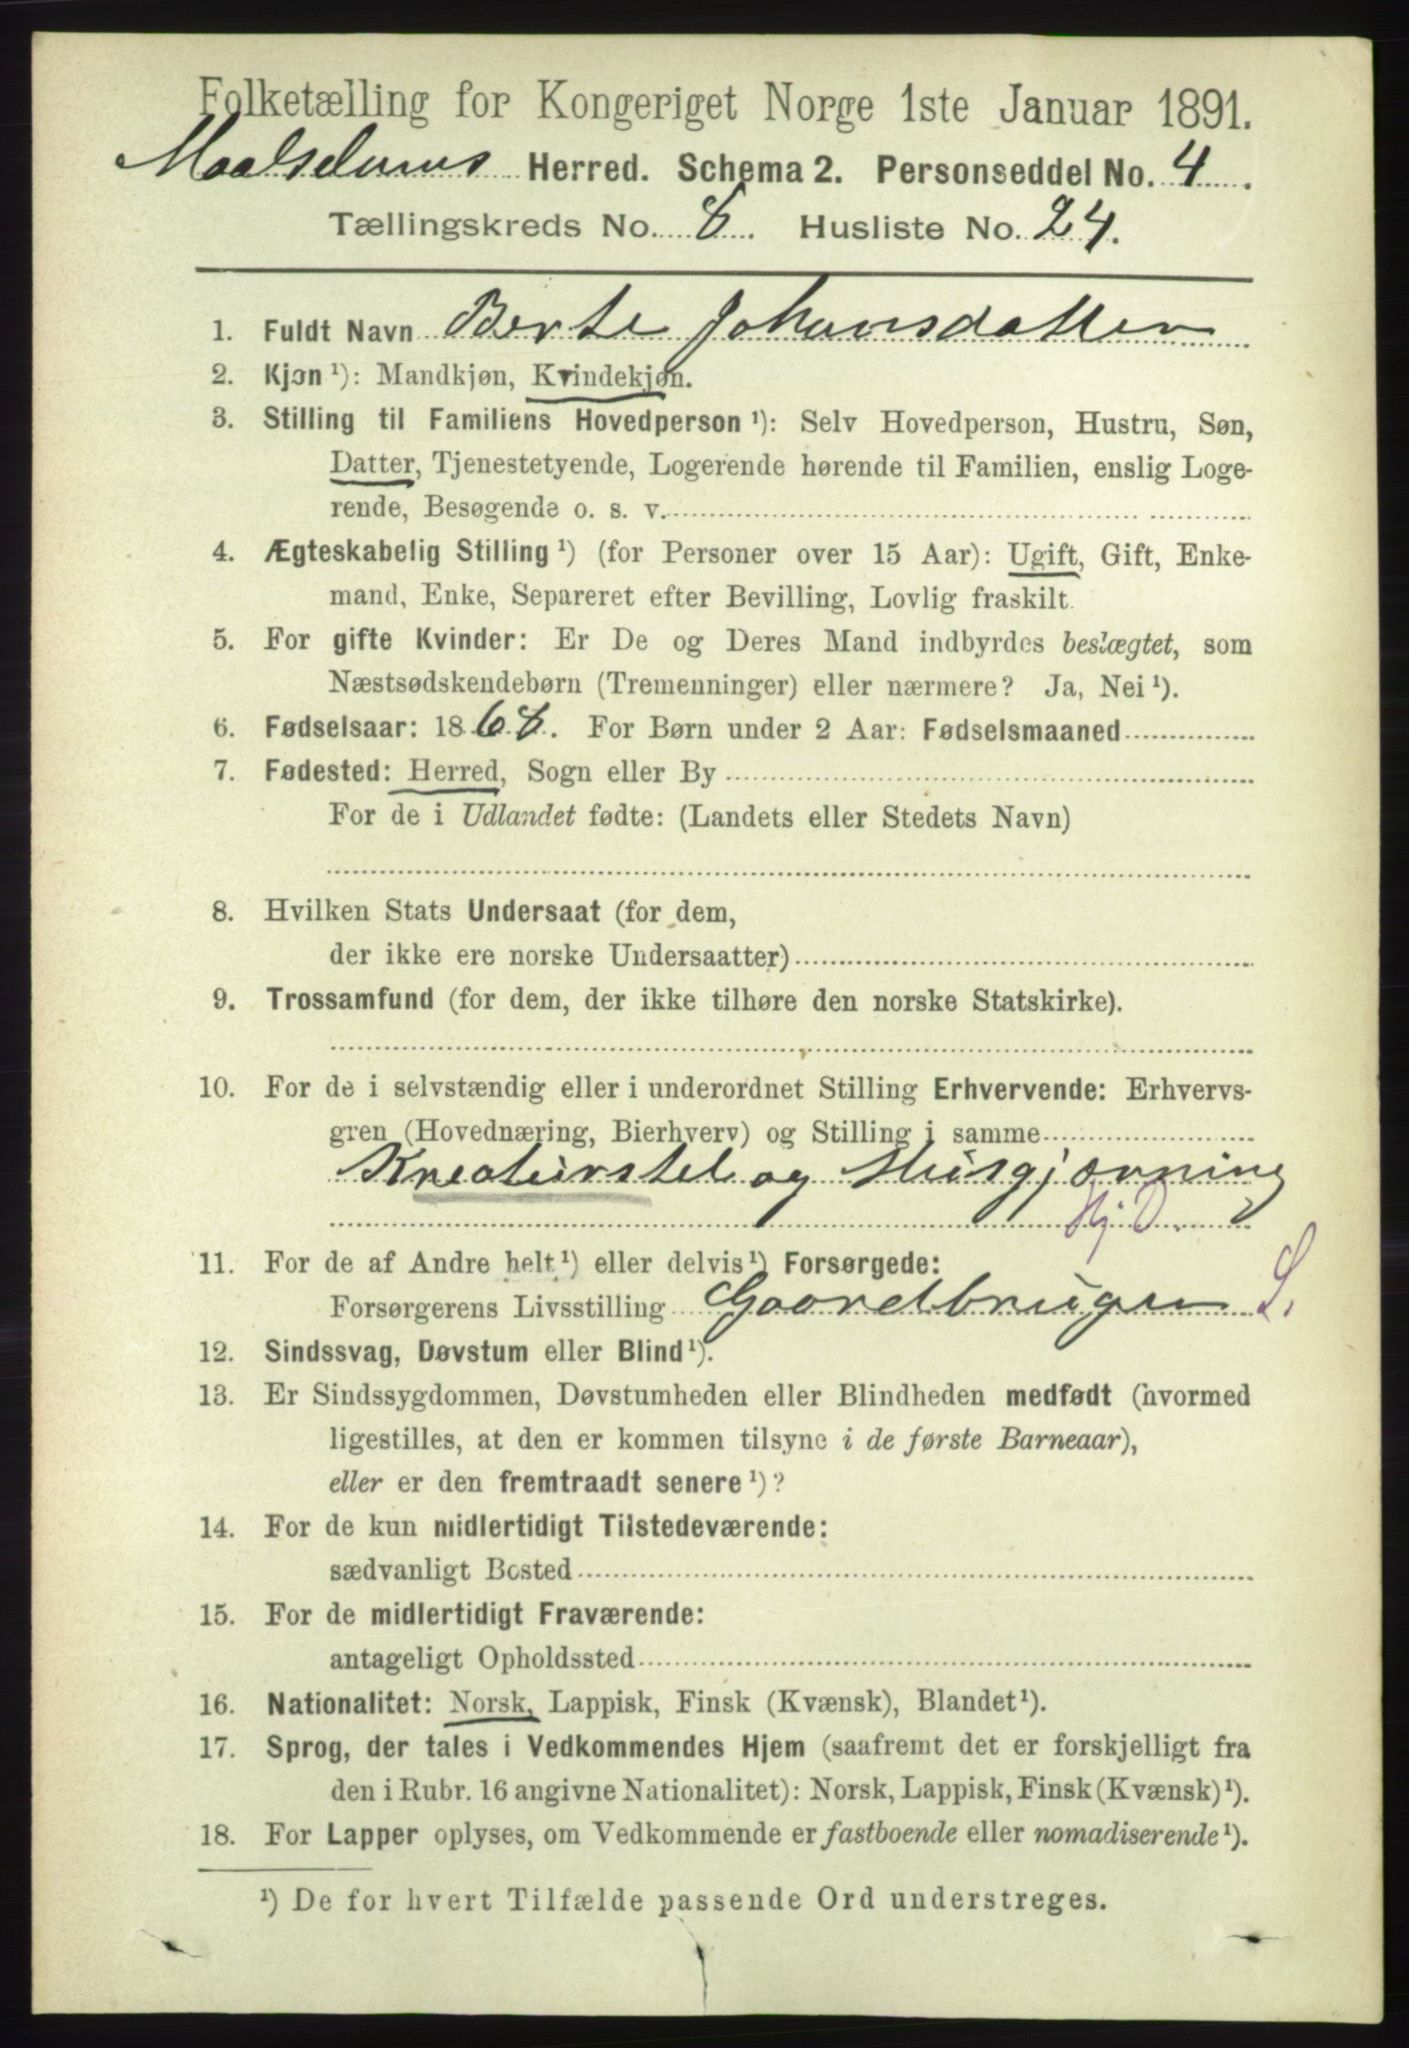 Folketælling for Kongeriget Norge 1ste Januar 1891.
Maalselvens Herred. Schema 2. Personseddel No. 4.
Tællingskreds No. 8. Husliste No. 24.
1. Fuldt Navn Berte Johansdatter
2. Kjøn ¹): Mandkjøn, Kvindekjøn.
3. Stilling til Familiens Hovedperson ¹): Selv Hovedperson, Hustru, Søn,
Datter, Tjenestetyende, Logerende hørende til Familien, enslig Loge-
rende, Besøgende o. s. v.
4. Ægteskabelig Stilling ¹) (for Personer over 15 Aar): Ugift, Gift, Enke-
mand, Enke, Separeret efter Bevilling, Lovlig fraskilt.
5. For gifte Kvinder: Er De og Deres Mand indbyrdes beslægtet, som
Næstsødskendebørn (Tremenninger) eller nærmere? Ja, Nei ¹).
6. Fødselsaar: 1868. For Børn under 2 Aar: Fødselsmaaned
7. Fødested: Herred, Sogn eller By
For de i Udlandet fødte: (Landets eller Stedets Navn)
8. Hvilken Stats Undersaat (for dem,
der ikke ere norske Undersaatter)
9. Trossamfund (for dem, der ikke tilhøre den norske Statskirke).
10. For de i selvstændig eller i underordnet Stilling Erhvervende: Erhvervs-
gren (Hovednæring, Bierhverv) og Stilling i samme
Kreaturstel og Husgjærning
Hj. D.
11. For de af Andre helt ¹) eller delvis ¹) Forsørgede:
Forsørgerens Livsstilling Gaardbruger S.
12. Sindssvag, Døvstum eller Blind ¹).
13. Er Sindssygdommen, Døvstumheden eller Blindheden medfødt (hvormed
ligestilles, at den er kommen tilsyne i de første Barneaar),
eller er den fremtraadt senere ¹)?
14. For de kun midlertidigt Tilstedeværende:
sædvanligt Bosted
15. For de midlertidigt Fraværende:
antageligt Opholdssted
16. Nationalitet: Norsk, Lappisk, Finsk (Kvænsk), Blandet ¹).
17. Sprog, der tales i Vedkommendes Hjem (saafremt det er forskjelligt fra
den i Rubr. 16 angivne Nationalitet): Norsk, Lappisk, Finsk (Kvænsk) ¹).
18. For Lapper oplyses, om Vedkommende er fastboende eller nomadiserende ¹).
¹) De for hvert Tilfælde passende Ord understreges.